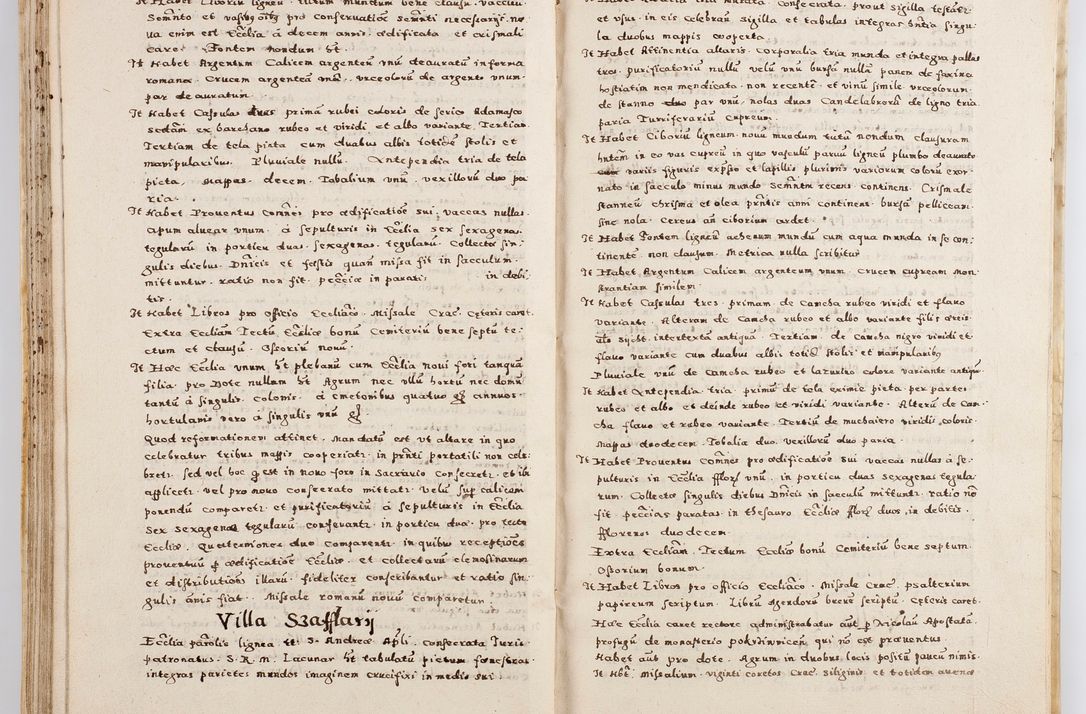 It Habet Ciboriu ligneu tutum mundum bene clausu vacciu
Semnto et vasibq oibq pro conservatioe semnti necessarijs no
va enim est Ecclia a decem annis ædificata et crismali
caret Fontem nondum ht
It Habet Argentum Calicem argenteu unu deauratu in forma
romana Crucem argentea una urceoloru de argento unum
par deauratum
It Habet Cassulas duas prima rubei coloris de serico Adamasco
secdam ex barchano rubeo et viridi et albo variante Tertian
Tertiam de tela picta cum duabus albis totide stolis et
manipularibus Pluuiale nullu Antependia tria de tela
picta Mappas decem Tobalium unu vexilloru duo pa
ria
It Habet Prouentus Comnes pro ædificatioe sui vaccas nullas
apum aluear unum à sepulturis in Ecclia sex sexagenas
tegularu in porticu duas sexagenas tegularu Collecta sin
gulis diebus Dnicis et festis quan missa fit in sacculum
mittuntur ratio non fit pecciæ in parati in debi
tis
It Habet Libros pro officio Eccliaco Missale Crac Ceteris caret
Extra Eccliam Tectu Eccliæ bonu Cemiteriu bene septu te
ctum et clausu Ossoriu nouu
It Hæc Ecclia unum ht plebanu cum Ecclia noui fori tanqua
filia pro Dote nullam ht Agrum nec ullu hortu nec domu
tantu à singulis colonis à cmetonibus quatuor gr annuos
hortulanis vero à singulis unu gr
Quod reformationem attinet Mandatu est ut altare in quo
celebratur tribus mappis cooperiat in prnti portatili non cele
bret sed vel hoc q est in nouo foro in Sacrario consecret et ibi
applicet vel pro nouo consecrato mittat Velu sup calicem
ponendu comparet et purificatoriu à sepulturis in Ecclia
Sex sexagenas tegularu conseruant in porticu duæ pro tecto
Eccliæ Quaterniones duo comparent in quibus receptioes
prouentuu p ædificatioe Eccliæ et collectaru elemosinarum
et distributiois illaru fideliter conscribantur et ratio sin
gulis annis fiat Missale romanu nouu comparetur
Villa Szafflarij
Ecclia parolis lignea tt S Andreæ Apli consecrata Juris
patronatus S R M Lacunar ht tabulatu pictum fenestras
integras parietes mundos imaginem crucifixi in medio sui
et usus in eis celebran sigilla et tabulas integras bntia singu
la duobus mappis cooperta
It Habet Attinentia altaris Corporalia tria munda et integra pallas
tres purificatoriu nullu velu unu bursa nulla panem de farina
hostiatim non mendicata non recente et vinu simile urceolorum
de stanno par unu nolas duas Candelabroru de ligno tria
paria Turriferariu cupreum
It Habet Ciborium ligneum nouu mundum tutu nondum clausuram
hntem in eo vas cupreu in quo vasculu paruu ligneu plumbo deaurato
variis figuris expsso et lapillis plurimis variorum coloru exor
nato in sacculo minus mundo Semntem recens continens Crismale
stanneu chrisma et olea prntis anni continens bursa pelliceam
sine nola Cereus an ciborium ardet
It Habet Fontem ligneu aebenum mundu cum aqua munda in se con
tinente non clausum Metrica nulla scribitur
It Habet Argentum Calicem argenteum unum Crucem cupream Mon
strantiam similem
It Habet Cassulas tres primam de Camcha rubeo viridi et flauo
variante Alteram de Camcha rubeo et albo variante filis aereis
als sycht intertexta antiqua Tertiam de Camcha nigro viridi et
flauo variante cum duabus albis totide stolis et manipularibq
Pluuiale unu de Camcha rubeo et lazurino colore variante antiqu
It Habet Antependia tria primu de tela eximie picta per partes
rubeo et albo et deinde rubeo et viridi variante Alteru de Cam
cha flauo et rubeo variante Tertiu de muchaiero viridis coloris
Mappas duodecem Tobalia duo vexilloru duo paria
It Habet Prouentus Comnes pro ædificatioe sui vaccas nullas à se
pulturis in Ecclia fflor unu in porticu duas sexagenas tegula
rum Collecta singulis diebus Dnicis in sacculu mittunt ratio no
fit peccias paratas in thesauro Eccliæ fflor duos in debitis
fflorenos duodecem
Extra Eccliam Tectum Eccliæ bonu Cemiteriu bene septum
Ossorium bonum
It Habet Libros pro officio Eccliaco Missale Crac psalterium
papireum scriptum Libru Agendoru breue scriptu Ceteris caret
Hæc Ecclia caret rectore administrabatur aut p Nicolau Apostata
profugu de monasterio qui no est prouentus
Habet aut pro dote Agrum in duobus locis positu paucu nimis
It Hbt Missalium viginti coretos Crac siliginis et totidem auenæ